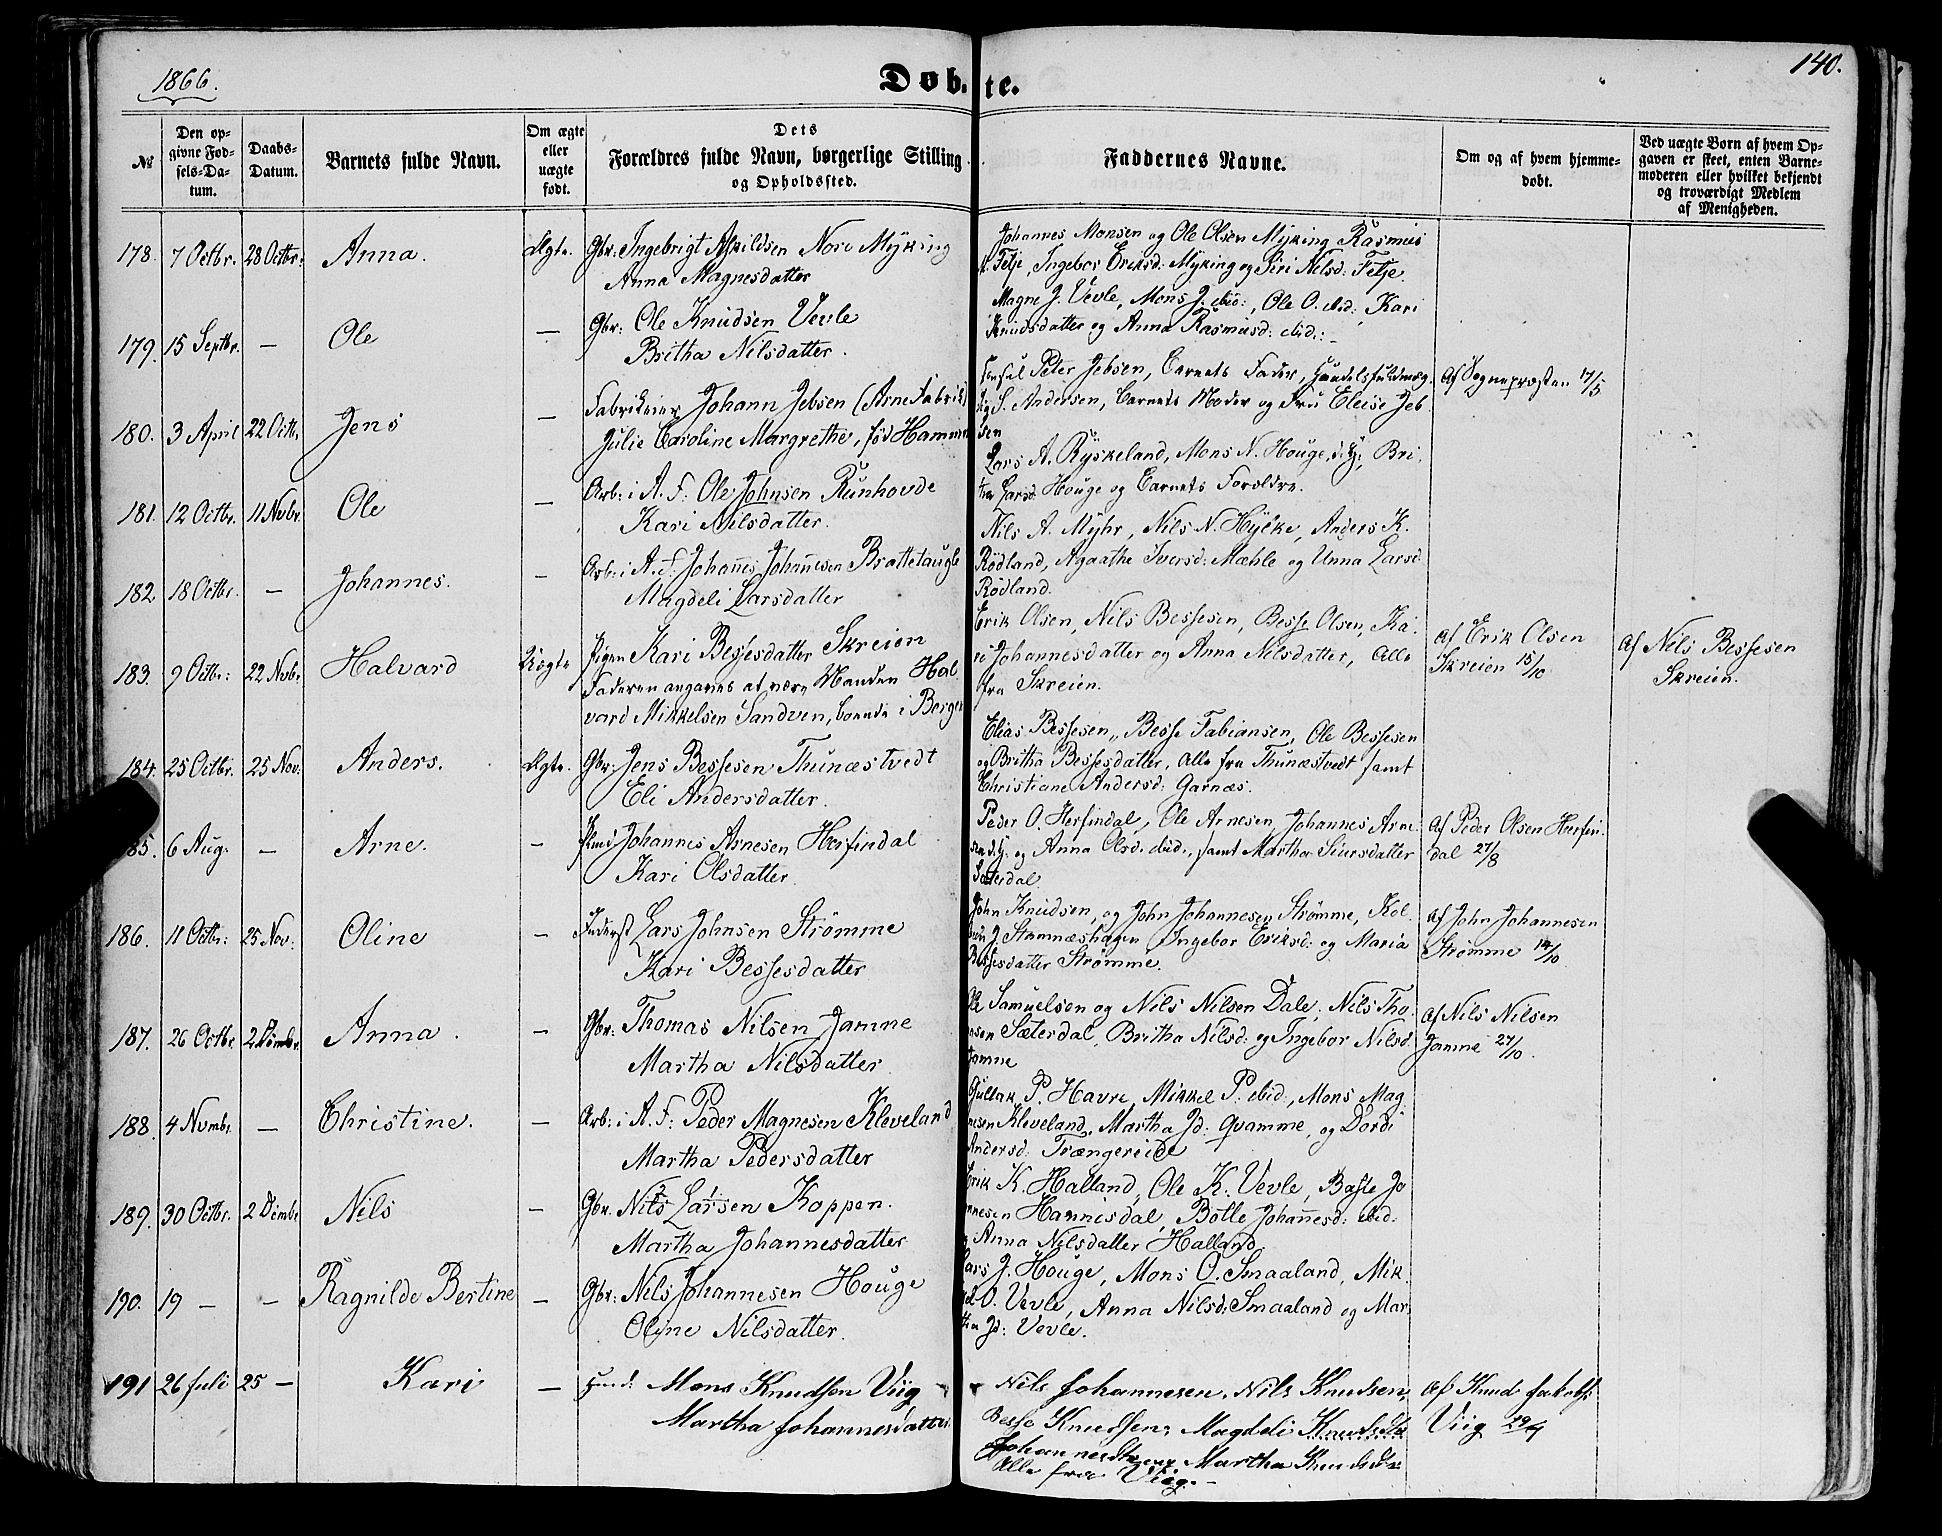 1866.
Døb. te.
140.
No
Den opgivne Fødsels-Datum.
Daabs-Datum.
Barnets fulde Navn.
Om ægte eller uægte født.
Dets Forældres fulde Navn, borgerlige Stilling og Opholdssted.
Faddernes Navne.
Om og af hvem hjemmedøbt.
Ved uægte Børn af hvem Opgaven er skeet, enten Barnemoderen eller hvilket bekjendt og troværdigt Medlem af Menigheden.
178. 7 Octbr. 28 Octbr. Anna. Ægte. Gbr. Ingebrigt Askildsen Nore Myking
Anna Magnesdatter
Johannes Monsen og Ole Olsen Myking Rasmus
Fetje, Ingebor Eriksd: Myking og Siri Nilsd: Fetje.
179. 15 Septbr. — Ole — Gbr: Ole Knudsen Vevle
Britha Nilsdatter.
Magne J. Vevle, Mons J. ibid:, Ole O. ibid:, Kari
Knudsdatter og Anna Rasmusd: ibid: -
180. 3 April 22 Octbr. Jens — Fabrikeier Johann Jebsen (Arne Fabrik)
Julie Caroline Margrethe, fød Hammer
Consul Peter Jebsen, Barnets Fader, Handelsfuldmæg
tig S. Andersen, Barnets Moder og Fru Eleise Jeb
sen
Af Sognepræsten 17/5
181. 12 Octbr. 11 Novbr. Ole — Arb: i A. F: Ole Johnsen Runhovde
Kari Nilsdatter.
Lars A. Ryskeland, Mons N. Houge, Bri
tha Larsd: Houge og Barnets Forældre.
182. 18 Octbr. — Johannes. — Arb: i A. F: Johannes Johannesen Brattetaugle
Magdeli Larsdatter
Nils A. Myhr, Nils N. Hylke, Anders K.
Rødland, Agaathe Iversd: Mæhle og Unna Larsd
Rødland.
183. 9 Octbr: 22 Novbr. Halvard Uægte Pigen Kari Bessesdatter Skreien
Faderen angaves at være Manden Hal
vard Mikkelsen Sandven, boende i Bergen
Erik Olsen, Nils Bessesen, Besse Olsen, Ka
ri Johannesdatter og Anna Nilsdatter, Alle
fra Skreien.
Af Erik Olsen
Skreien 15/10
Af Nils Bessesen
Skreien.
184. 25 Octbr. 25 Nov. Anders. Ægte. Gbr: Jens Bessesen Thunæstvedt
Eli Andersdatter.
Elias Bessesen, Besse Fabiansen, Ole Bessesen
og Britha Bessesdatter, Alle fra Thunæstvedt samt
Christiane Andersd: Garnæs.
85. 6 Aug. — Arne. — Johannes Arnesen Herfindal
Kari Olsdatter.
Peder O. Herfindal, Ole Arnesen, Johannes Arne
sen og Anna Olsd. ibid., samt Martha Siursdatter
Sæterdal.
Af Peder Olsen Herfin
dal 27/8
186. 11 Octbr: 25 Nov: Oline — Inderst Lars Johnsen Strømme
Kari Bessesdatter
John Knudsen, og John Johannesen Strømme, Kol
J. Stamnæshagen Ingebor Eriksd: og Maria
Bessesdatter Strømme.
Af John Johannesen
Strømme 14/10
187. 26 Octbr. 2 Anna. — Gbr: Thomas Nilsen Jamne
Martha Nilsdatter.
Ole Samuelsen og Nils Nilsen Dale, Nils Tho
masen Sæterdal, Britha Nilsd: og Ingebor Nilsd:
Jamne
Af Nils Nilsen
Jamne 27/10.
188. 4 Novmbr. — Christine. — Arb: i A. F: Peder Magnesen Kleveland
Martha Pedersdatter
Gullak P. Havre, Mikkel P. ibid:, Mons Mag
nesen Kleveland, Martha Jd: Qvamme, og Dordi
Andersd: Trængereide
189. 30 Octbr. 2 Nils — Gbr. Nils Larsen Koppen.
Martha Johannesdatter
Erik K. Halland, Ole K. Vevle, Basse Jo
hannesen Hannisdal, Botle Johannesd: ibid:
Anna Nilsdatter Halland.
190. 19 — — Ragnilde Bertine — Gbr: Nils Johannesen Houge
Oline Nilsdatter.
Lars J. Houge, Mons O. Smaaland, Mik
kel O. Vevle, Anna Nilsd: Smaaland og Mar
tha Jd: Vevle.
191 26 Juli 25 — Kari — Mons Knudsen Viig
Martha Johannesdatter
Nils Johannesen, Nils Knudsen,
Besse Knudsen, Magdeli
Martha
Alle fra Viig. -
Af Knud
Viig